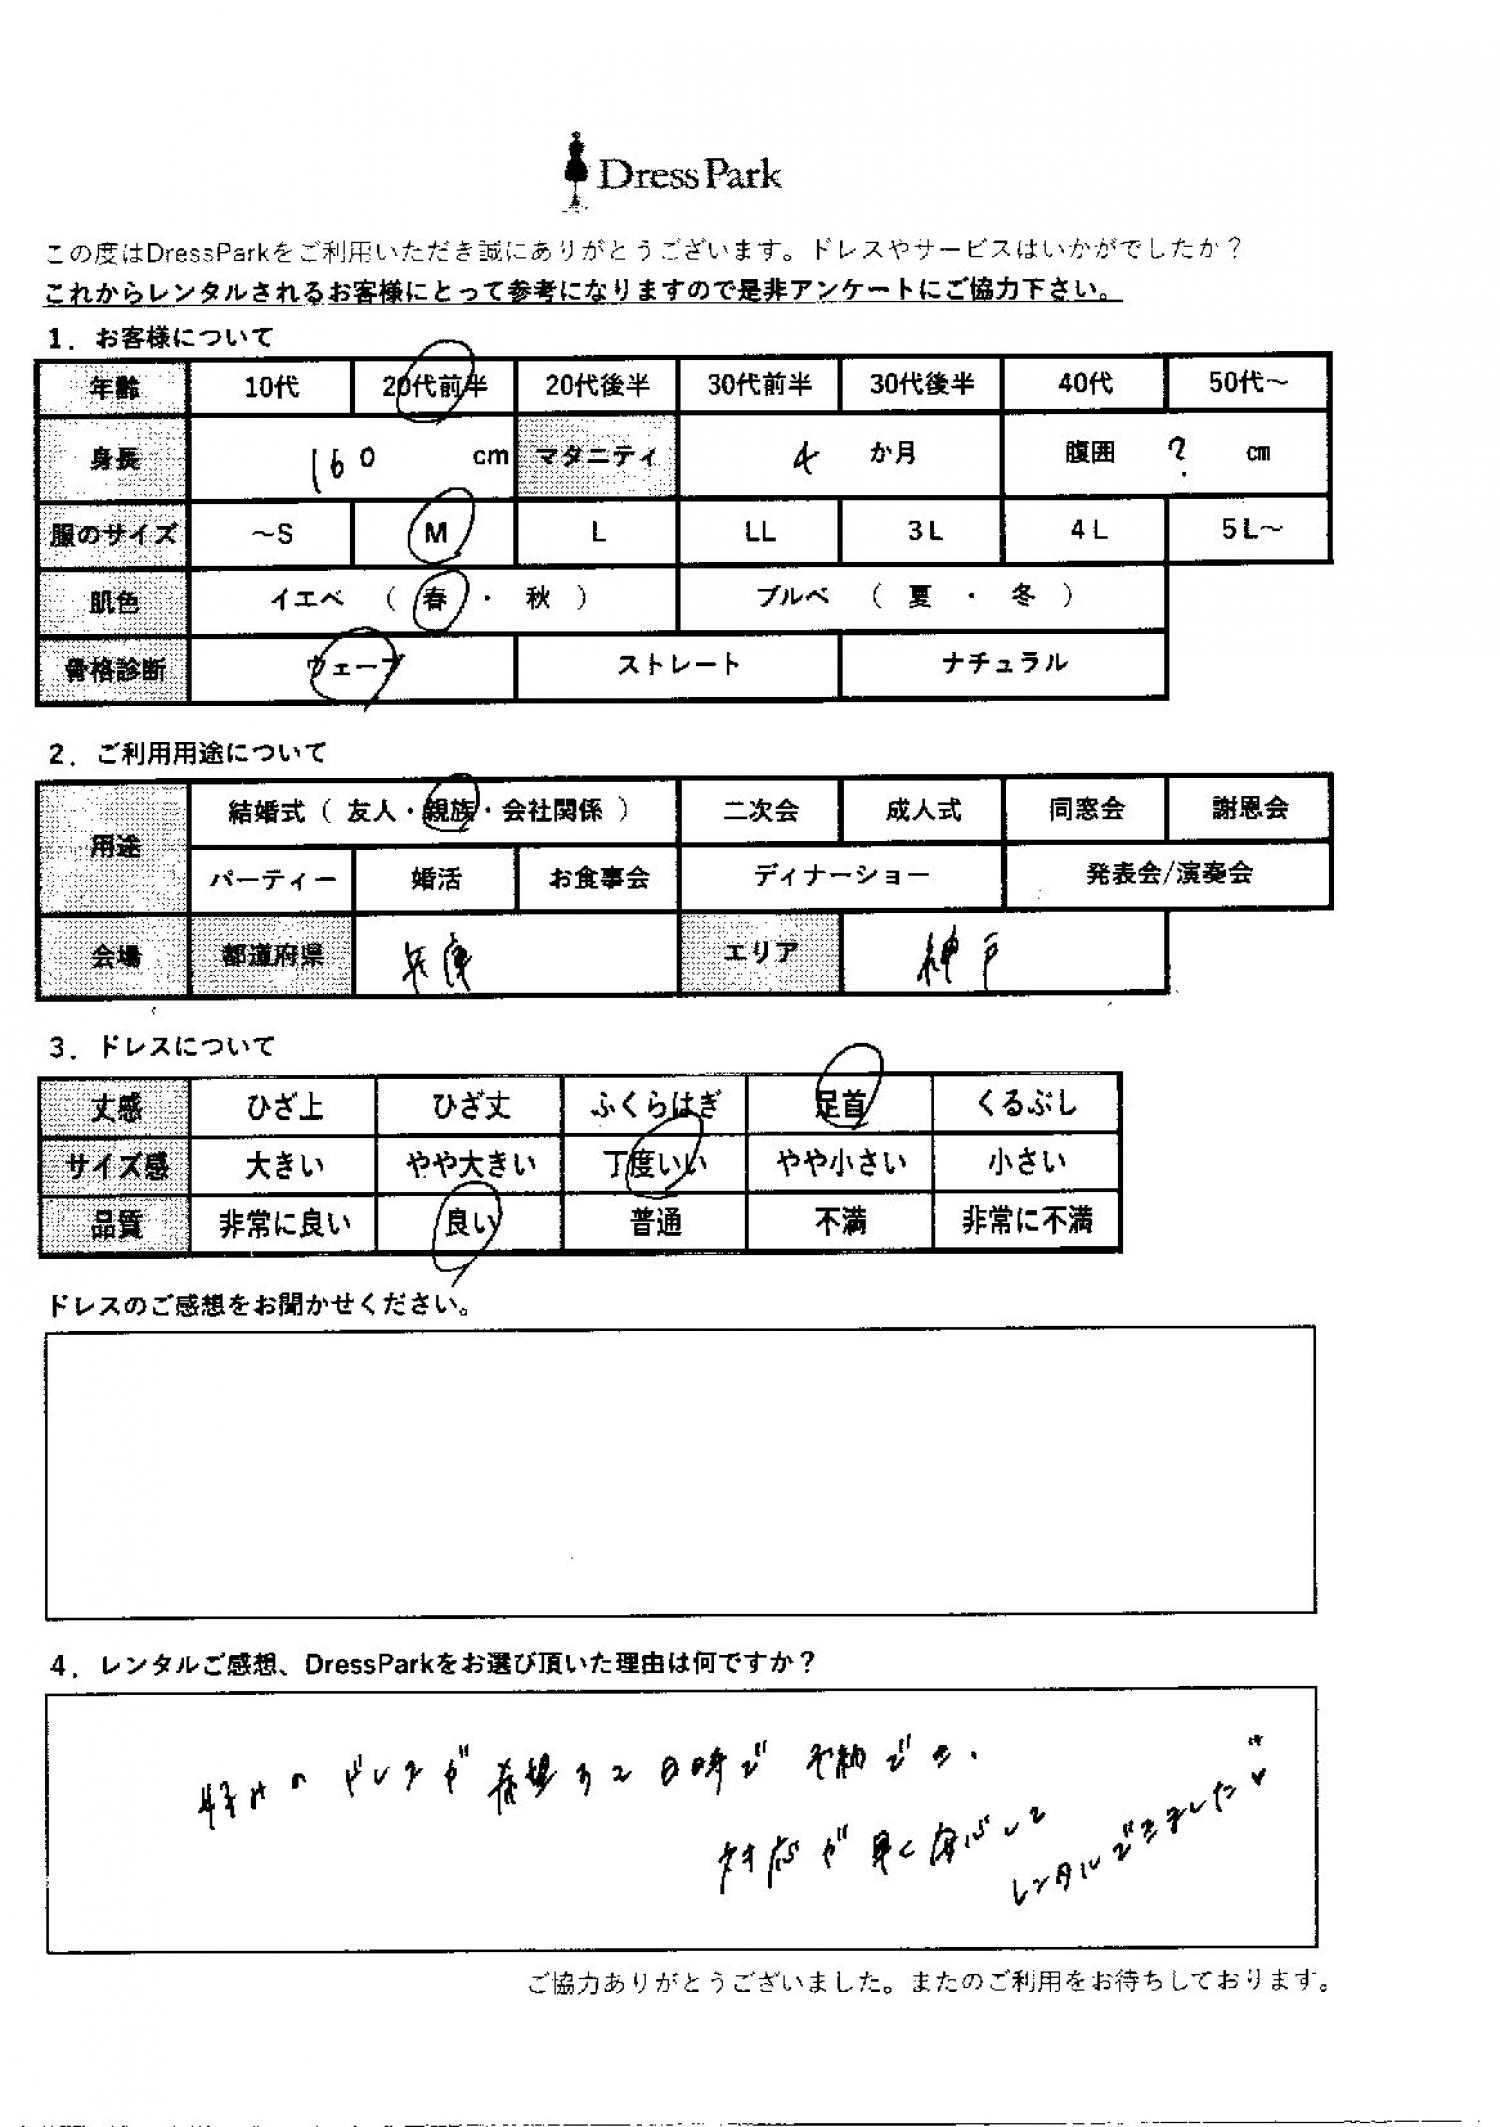 Dress Park
この度はDressParkをご利用いただき誠にありがとうございます。ドレスやサービスはいかがでしたか？
これからレンタルされるお客様にとって参考になりますので是非アンケートにご協力下さい。
1．お客様について
年齢 10代 20代前半 20代後半 30代前半 30代後半 40代 50代～
身長 160 cm マタニティ 4 か月 腹囲 ? cm
服のサイズ ～S M L LL 3L 4L 5L～
肌色 イエベ （ 春 ・ 秋 ） ブルベ （ 夏 ・ 冬 ）
骨格診断 ウェーブ ストレート ナチュラル
2．ご利用用途について
用途 結婚式（ 友人・親族・会社関係 ） 二次会 成人式 同窓会 謝恩会
パーティー 婚活 お食事会 ディナーショー 発表会/演奏会
会場 都道府県 兵庫 エリア 神戸
3．ドレスについて
丈感 ひざ上 ひざ丈 ふくらはぎ 足首 くるぶし
サイズ感 大きい やや大きい 丁度いい やや小さい 小さい
品質 非常に良い 良い 普通 不満 非常に不満
ドレスのご感想をお聞かせください。
4．レンタルご感想、DressParkをお選び頂いた理由は何ですか？
好みのドレスが希望する日時で予約でき、
対応が早く安心して
レンタルできました♥
ご協力ありがとうございました。またのご利用をお待ちしております。